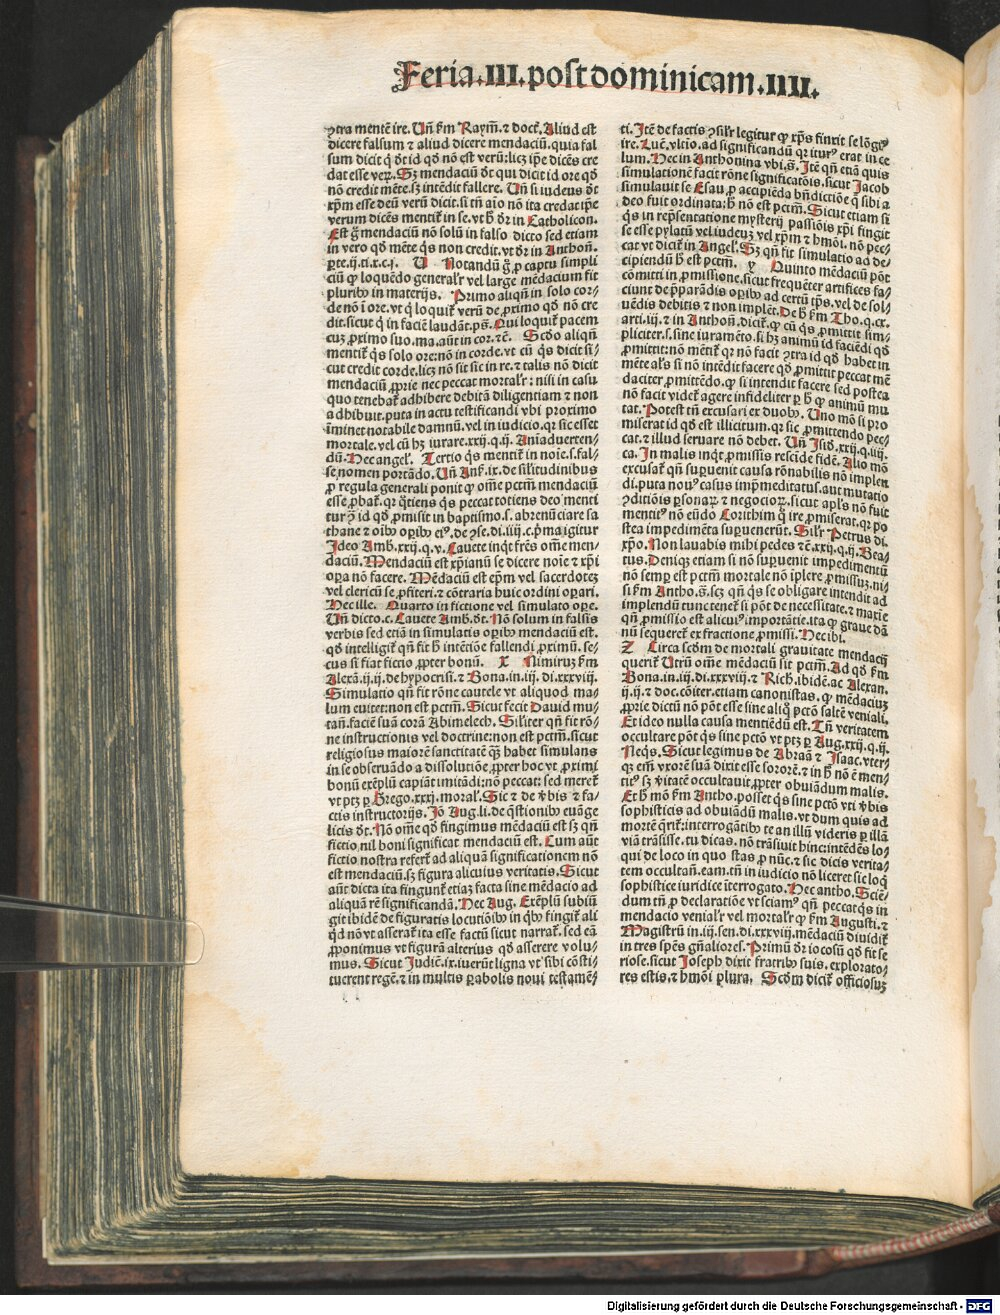 Feria.III.post dominicam.IIII.
ꝯtra mentē ire. Uñ ẜm Raym̄. ⁊ doct̄. Aliud est
dicere falsum ⁊ aliud dicere mendaciū. quia fal
sum dicit q̄ d̄t id qd̄ nō est verū: licꝫ ip̄e dicēs cre
dat esse veꝝ. Sꝫ mendaciū d̄t qui dicit id ore qd̄
nō credit mēte. sꝫ intēdit fallere. Uñ si iudeus d̄t
xp̄m esse deū verū dicit. si tn̄ aīo nō ita credat ip̄e
verum dicēs mentit̄ in se. vt h̄ d̄r in Catholicon.
Est g̊ mendaciū nō solū in falso dicto sed etiam
in vero qd̄ mēte q̄s non credit. vt d̄r in Anthoñ.
ꝑte.ij.ti.x.c.j. U Notandū g̊ ꝓ captu simpli
ciū ꝙ loquēdo general̓r vel large mēdacium fit
pluribꝰ in materijs. Primo aliqn̄ in solo cor-
de nō ī ore. vt q̄ loquit̄ verū de ꝓximo qd̄ nō cre
dit. sicut q̄ in faciē laudāt. ps̄. Qui loquit̄ pacem
cuꝫ ꝓximo suo. ma. aūt in cor. ⁊c̄. Scd̄o aliqn̄
mentit̄ q̄s solo ore: nō in corde. vt cū q̄s dicit si-
cut credit corde. licꝫ nō sit sic in re. ⁊ talis nō dicit
mendaciū ꝓprie nec peccat mortal̓r: nisi in casu
quo tenebat̄ adhibere debitā diligentiam ⁊ non
adhibuit. puta in actu testificandi vbi proximo
īminet notabile damnū. vel in iudicio. qr sic esset
mortale. vel cū hꝫ iurare. xxij.q.ij. Aniaduerten-
dū. Hec angel̓. Tertio q̄s mentit̄ in noīe. s. fal-
se nomen portādo. Uñ Ans̄. ix. de sil̓itudinibus
ꝓ regula generali ponit ꝙ om̄e pctm̄ mendaciū
esse ꝓbat̄. qr q̄tiens q̄s peccat totiens deo menti
tur ꝯ̄ id qd̄ ꝓmisit in baptismo. s. abrenūciare sa
thane ⁊ oībꝰ oꝑibꝰ eiꝰ. de ꝯse. di.iiij. c. pͥma igitur
Ideo Amb. xxij.q.v. Cauete inqt fr̄es om̄e men-
daciū. Mendaciū est xp̄ianū se dicere noīe ⁊ xp̄i
oꝑa nō facere. Mēdaciū est ep̄m vel sacerdotez
vel clericū se ꝓfiteri. ⁊ cōtraria huic ordini oꝑari.
Hec ille. Quarto in fictione vel simulato oꝑe.
Uñ dicto. c. Cauete Amb. d̄t. Nō solum in falsis
verbis sed etiā in simulatis oꝑibꝰ mendaciū est.
qd̄ intelligit̄ qn̄ fit h̄ intētiōe fallendi ꝓximū. se-
cus si fiat fictio ꝓpter bonū. x Nimiruꝫ ẜm
Alexā.ij.ij. de hypocrisi. ⁊ Bona. in.iij.di.xxxviij.
Simulatio qn̄ fit rōne cautele vt aliquod ma-
lum euitet: non est pctm̄. Sicut fecit Dauid mu-
tañ. faciē suā corā Abimelech. Sil̓iter qn̄ fit rō-
ne instructionis vel doctrine: non est pctm̄. sicut
religiosus maiorē sanctitatē qꝫ habet simulans
in se obseruādo a dissolutiōe. ꝓpter hoc vt ꝓximi
bonū exēplū capiāt imitādi: nō peccat: sed meret̄
vt ptꝫ ꝑ Grego. xxxj. moral̓. Sic ⁊ de v̄bis ⁊ fa-
ctis instructorijs. Iō Aug. li. de q̄stionibꝰ euāge
licis d̄t. Nō om̄e qd̄ fingimus mēdaciū est sꝫ qn̄
fictio. nil boni significat mendaciū est. Cum aūt
fictio nostra refert̄ ad aliquā significationem nō
est mendaciū. sꝫ figura alicuius veritatis. Sicut
aūt dicta ita fingunt̄ etiaꝫ facta sine mēdacio ad
aliquā rē significandā. Hec Aug. Exēplū subiū
git ibidē de figuratis locutiōibꝰ in qbꝰ fingit̄ ali
qd nō vt asserat̄ ita esse factū sicut narrat̄. sed eā
ꝓponimus vt figurā alterius qd̄ asserere volu-
mus. Sicut Judic̄.ix. iuerūt ligna vt sibi cōsti-
tuerent regē. ⁊ in multis ꝑabolis noui testamē-
ti. Itē de factis ꝯsil̓r legitur ꝙ xp̄s finxit se lōgiꝰ
ire. Luc̄. vltīo. ad significandū qr iturꝰ erat in ce
lum. Hec in Anthonina vbi. s̄. Itē qn̄ etiā quis
simulationē facit rōne significatōis. sicut Jacob
simulauit se Esau ꝓ accipiēda bn̄dictiōe q̄ sibi a
deo fuit ordinata: h̄ nō est pctm̄. Sicut etiam si
q̄s in rep̄sentatione mysterij passiōis xp̄i fingit
se esse pylatū vel iudeuꝫ vel xp̄m ⁊ hmōi. nō pec-
cat vt dicit̄ in Angel̓. Sꝫ qn̄ fit simulatio ad de-
cipiendū h̄ est pctm̄. y Quinto mēdaciū pōt
cōmitti in ꝓmissione. sicut frequēter artifices fa-
ciunt de p̄parādis oꝑibꝰ ad certū tp̄s. vel de sol-
uēdis debitis ⁊ non implēt. De h̄ ẜm Tho. q. cx.
arti.iij. ⁊ in Anthoñ. dicit̄. ꝙ cū q̄s ꝓmittit sim-
pliciter. s. sine iuramēto. si hꝫ animū id faciēdi qd̄
ꝓmittit: nō mētit̄ qr nō facit ꝯtra id qd̄ habet in
mēte al̓s si nō intēdit facere qd̄ ꝓmittit peccat mē
daciter ꝓmittēdo. ꝙ si intendit facere sed postea
nō facit videt̄ agere infideliter ꝑ h̄ ꝙ animū mu
tat. Potest tn̄ excusari ex duobꝰ. Uno mō si pro
miserat id qd̄ est illicitum. qr sic ꝓmittendo pec-
cat. ⁊ illud seruare nō debet. Uñ Isid̄. xxij.q.iiij.
ca. In malis inqt ꝓmissis rescīde fidē. Alio mō
excusat̄ qn̄ suꝑuenit causa rōnabilis nō implen
di. puta nouꝰ casus imp̄meditatꝰ. aut mutatio
ꝯditiōis ꝑsonaꝝ ⁊ negocioꝝ. sicut apl̓s nō fuit
mentitꝰ nō eūdo Corithim q̊ ire ꝓmiserat. qr po
stea impedimēta suꝑuenerūt. Sil̓r Petrus di.
xp̄o. Non lauabis mihi pedes ⁊c̄. xxij.q.ij. Bea-
tus. Denique etiam si nō suꝑuenit impedimentū
nō semꝑ est pctm̄ mortale nō īplere ꝓmissuꝫ. ni-
si ẜm Antho. s̄. scꝫ qn̄ q̄s se obligare intendit ad
implendū tunc tenet̄ si pōt de necessitate. ⁊ maxīe
qn̄ ꝓmissio est alicuiꝰ importātie. ita ꝙ graue dā
nū sequeret̄ ex fractione ꝓmissi. Hec ibi.
Z Circa scd̄m de mortali gravitate mendacij
querit̄ Utrū om̄e mēdaciū sit pctm̄. Ad qd̄ ẜm
Bona. in.iij.di.xxxviij. ⁊ Rich. ibidē. ac Alexan.
ij.ij. ⁊ doc. cōiter. etiam canonistas. ꝙ mēdaciuꝫ
ꝓprie dictū nō pōt esse sine aliq̊ pctō saltē veniali.
Et ideo nulla causa mentiēdi est. Tn̄ veritatem
occultare pōt q̄s sine pctō vt ptꝫ ꝑ Aug. xxij.q.ij.
Neq̄s. Sicut legimus de Abraā ⁊ Isaac. vter-
qꝫ em̄ vxorē suā dixit esse sororē. ⁊ in h̄ nō ē men-
titꝰ sꝫ v̄itatē occultauit ꝓpter obuiandum malis.
Et h̄ mō ẜm Antho. posset q̄s sine pctō vti v̄bis
sophisticis ad obuiādū malis. vt dum quis ad
mortē q̄rit̄: interrogātibꝰ te an illū videris ꝑ illā
viā trāsisse. tu dicas. nō trāsiuit hinc: intēdēs lo-
qui de loco in quo stas ꝓ nūc. ⁊ sic dicis verita-
tem occultañ. eam. tn̄ in iudicio nō liceret sic loq̄
sophistice iuridice īterrogato. Hec antho. Sciē-
dum tn̄ ꝓ declaratiōe vt sciamꝰ qn̄ peccat q̄s in
mendacio venial̓r vel mortal̓r ꝙ ẜm Augusti. ⁊
Magistrū in.iij.sen.di.xxxviij. mēdaciū diuidit̄
in tres sp̄es gn̄aliores. Primū d̄r iocosū qd̄ fit se
riose. sicut Joseph dixit fratribꝰ suis. explorato-
res estis. ⁊ hmōi plura. Scd̄m dicit̄ officiosuꝫ
Digitalisierung gefördert durch die Deutsche Forschungsgemeinschaft - DFG